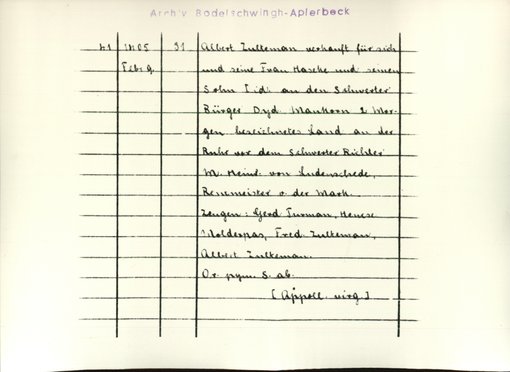 Archiv Bodelschwingh-Aplerbeck
41 1405 31 Albert Zulteman verkauft für sich
Febr 9. und seine Frau Haseke und seinen
Sohn an den Schwerter
Bürger Dyd. Mankorn 2 Mor-
gen bezeichnetes Land an der
Ruhr vor dem Schwerter Richter
M. Heinr. von Ludenschede,
Rentmeister v. der Mark.
Zeugen: Gerd Turman, Henese
Wolderpas, Fred Zulteman,
Albert Zulteman.
Or. pgm. S. ab.
[Appoll. virg.]